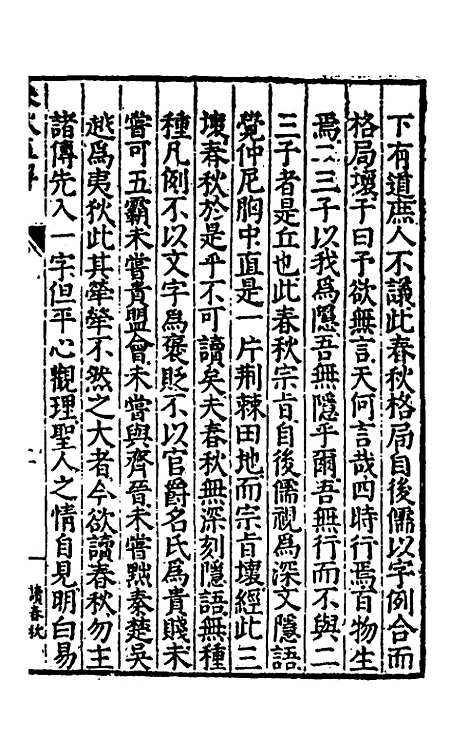 下有道庶人不議此春秋格局自後儒以字例合而
格局壞子曰予欲無言天何言哉四時行焉百物生
焉二三子以我爲隱吾無隱乎爾吾無行而不與二
三子者是丘也此春秋宗旨自後儒視爲深文隱語
覺仲尼胸中直是一片荆棘田地而宗旨壞經此三
壞春秋於是乎不可讀矣夫春秋無深刻隱語無種
種凡例不以文字爲褒貶不以官爵名氏爲貴賤未
嘗可五霸未嘗貴盟會未嘗與齊晉未嘗黜秦楚吳
越爲夷狄此其犖犖不然之大者今欲讀春秋勿主
諸傳先入一字但平心觀理聖人之情自見明白易
讀春秋